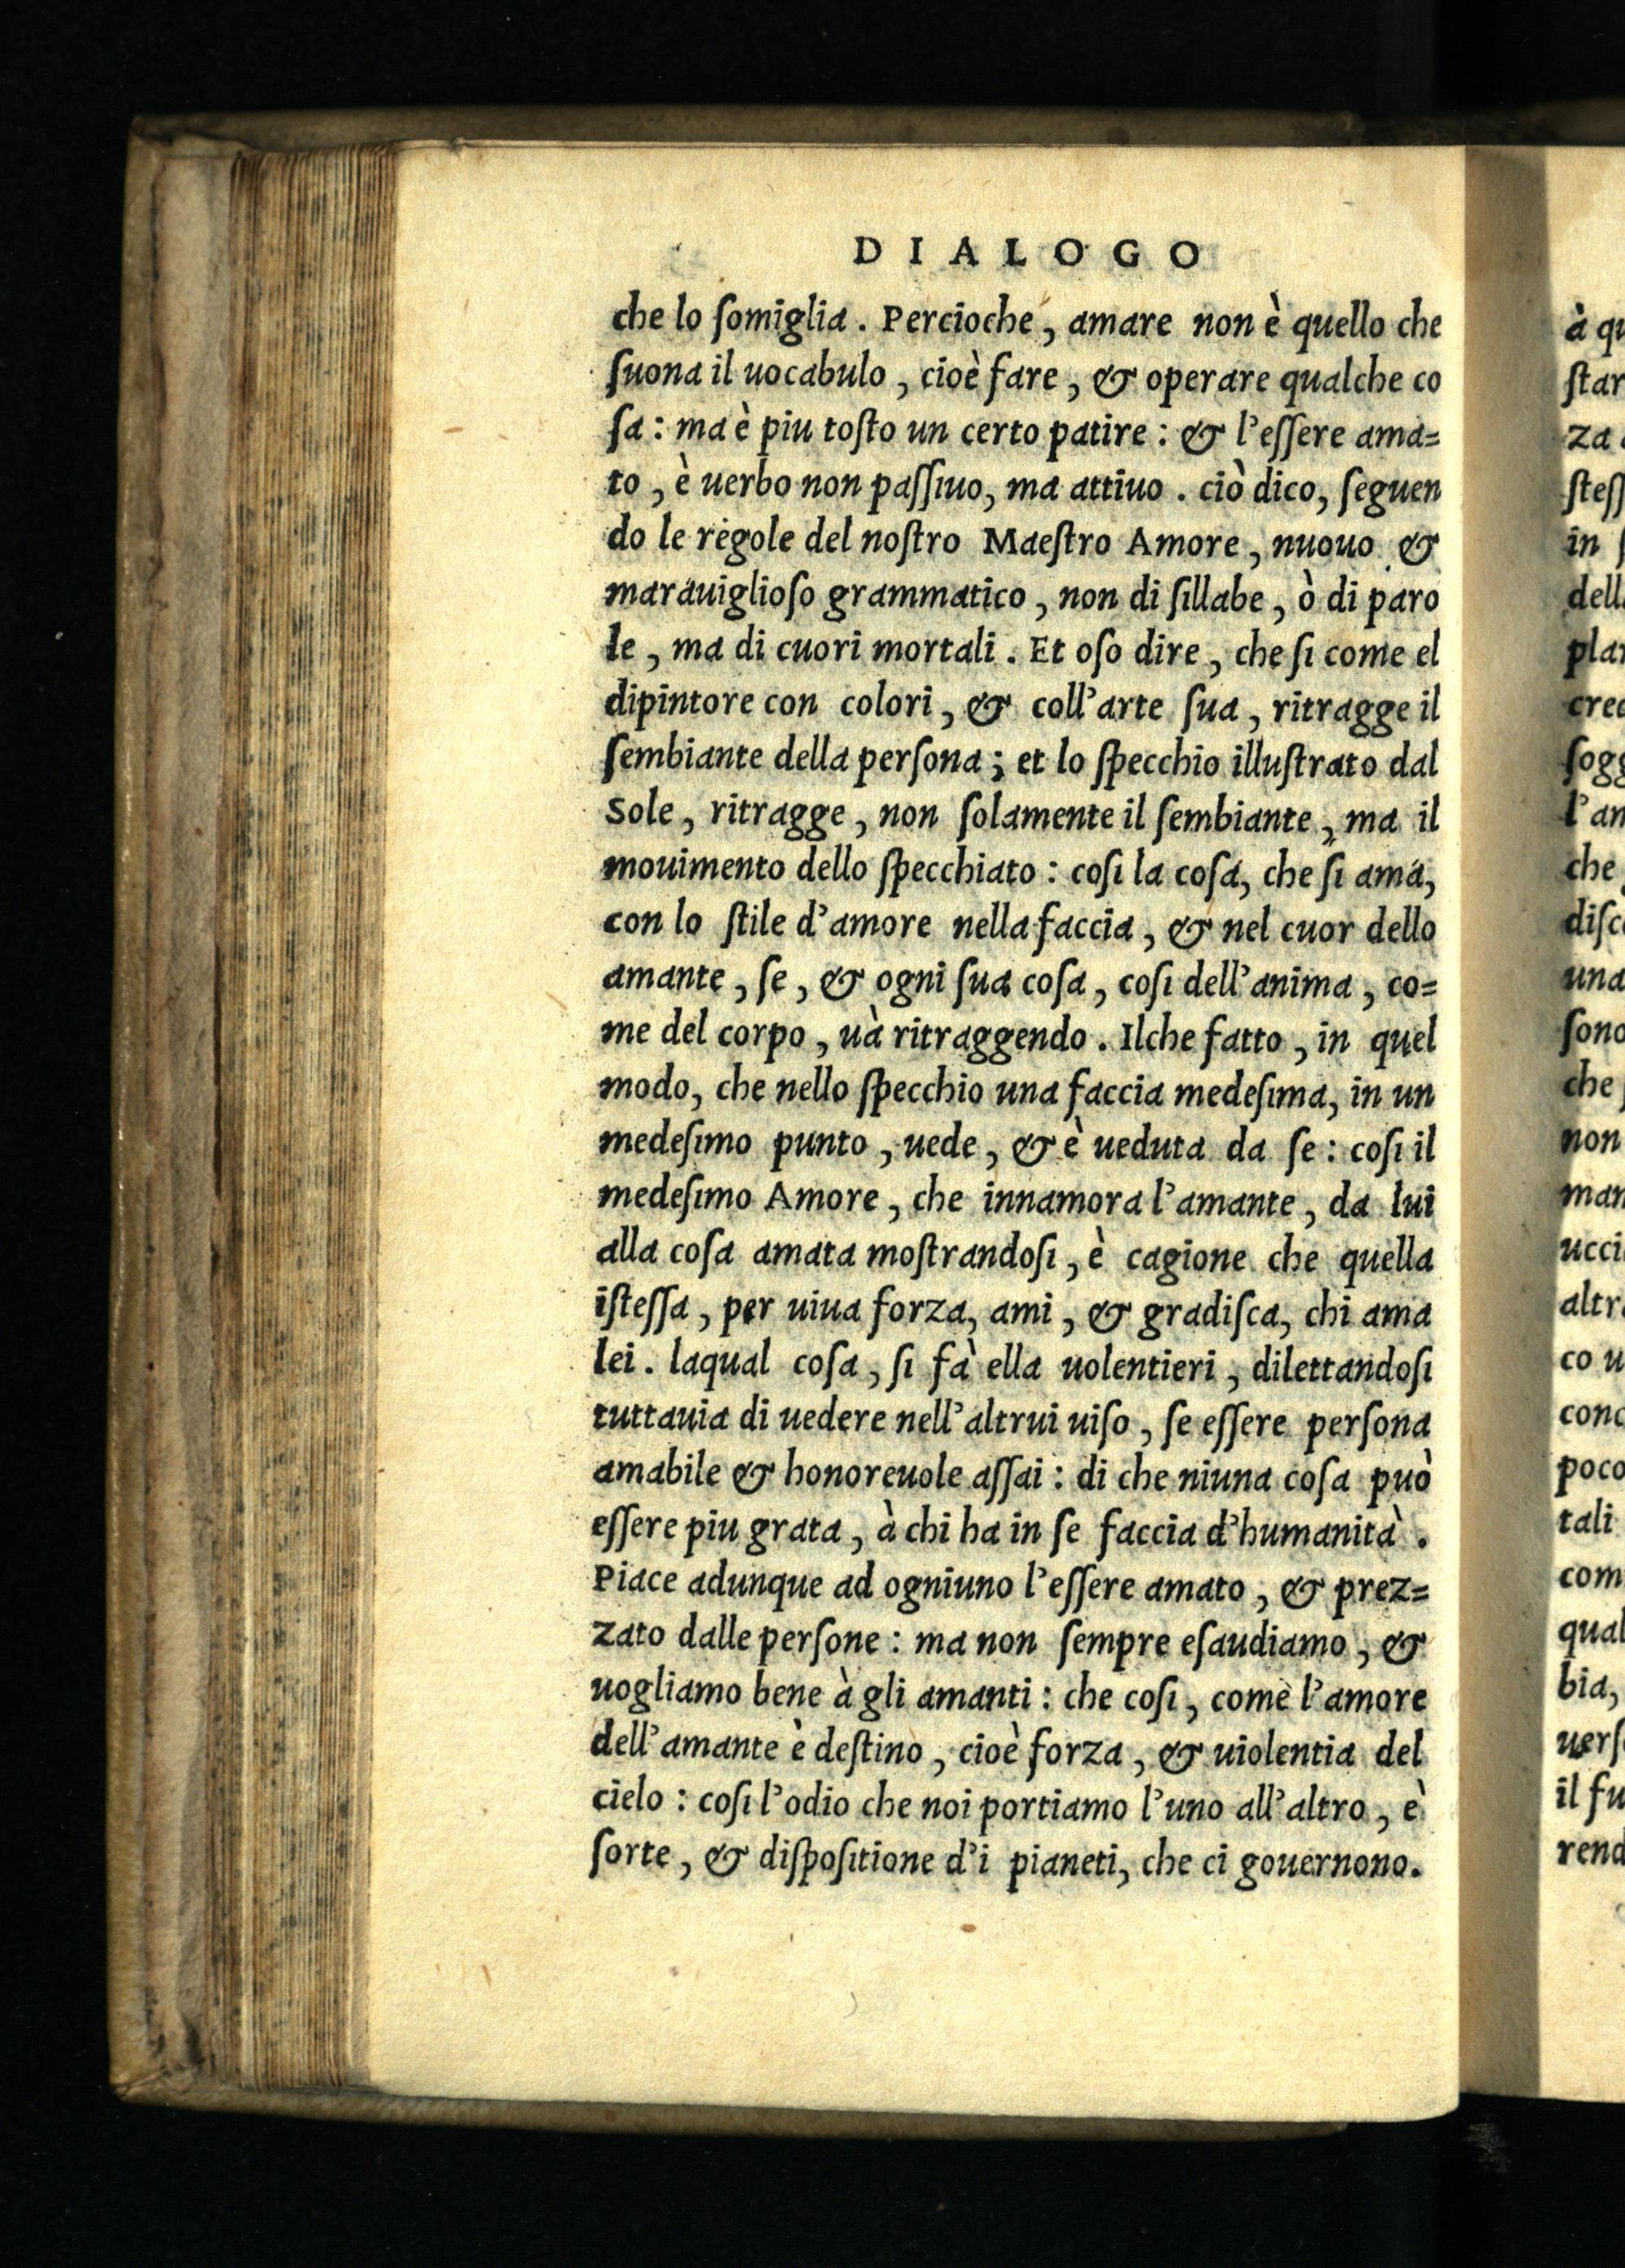 DIALOGO
che lo ſomiglia. Percioche, amare non è quello che
ſuona il uocabulo, cioè fare, & operare qualche co
ſa: ma è piu toſto un certo patire: & l'eſſere ama=
to, è uerbo non paſſiuo, ma attiuo. ciò dico, ſeguen
do le regole del noſtro Maeſtro Amore, nuouo &
marauiglioſo grammatico, non di ſillabe, ò di paro
le, ma di cuori mortali. Et oſo dire, che ſi come el
dipintore con colori, & coll'arte ſua, ritragge il
ſembiante della perſona; et lo ſpecchio illuſtrato dal
Sole, ritragge, non ſolamente il ſembiante, ma il
mouimento dello ſpecchiato: coſi la coſa, che ſi ama,
con lo ſtile d'amore nella faccia, & nel cuor dello
amante, ſe, & ogni ſua coſa, coſi dell'anima, co=
me del corpo, uà ritraggendo. Ilche fatto, in quel
modo, che nello ſpecchio una faccia medeſima, in un
medeſimo punto, uede, & è ueduta da ſe: coſi il
medeſimo Amore, che innamora l'amante, da lui
alla coſa amata moſtrandoſi, è cagione che quella
iſteſſa, per uiua forza, ami, & gradiſca, chi ama
lei. laqual coſa, ſi fà ella uolentieri, dilettandoſi
tuttauia di uedere nell'altrui uiſo, ſe eſſere perſona
amabile & honoreuole aſſai: di che niuna coſa può
eſſere piu grata, à chi ha in ſe faccia d'humanità.
Piace adunque ad ogniuno l'eſſere amato, & prez=
zato dalle perſone: ma non ſempre eſaudiamo, &
uogliamo bene à gli amanti: che coſi, come l'amore
dell'amante è deſtino, cioè forza, & uiolentia del
cielo: coſi l'odio che noi portiamo l'uno all'altro, è
ſorte, & diſpoſitione d'i pianeti, che ci gouernono.